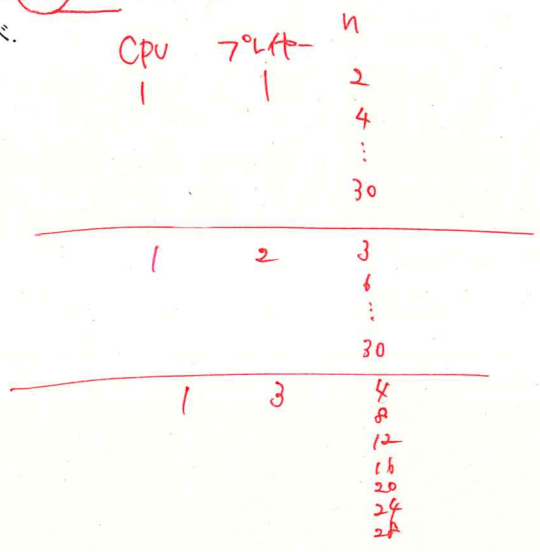 べ.
CPU プレイヤー n
1 1 2
4
⋮
30
1 2 3
6
⋮
30
1 3 4
8
12
16
20
24
28